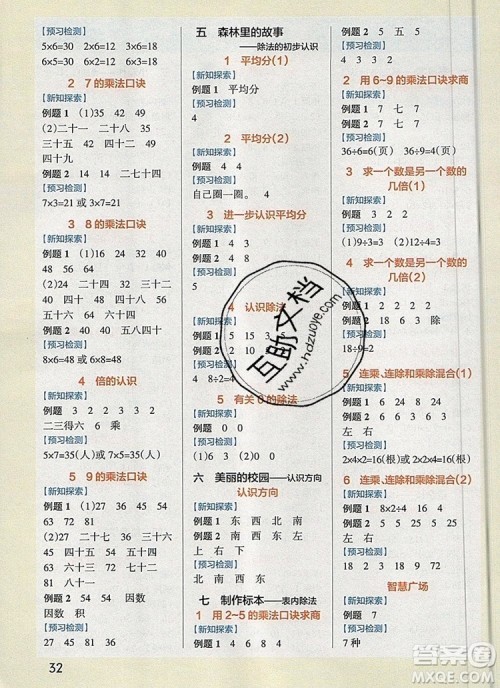 【预习检测】
5×6=30 2×6=12 3×6=18
6×5=30 6×2=12 6×3=18
2 7的乘法口诀
【新知探索】
例题1 (1)35 42 49
(2)二十一 二十八 三十五
四十二 四十九
例题2 14 二七十四
【预习检测】
7×3=21或3×7=21
3 8的乘法口诀
【新知探索】
例题1 (1)16 24 32 40
48 56 64
(2)二十四 三十二 四十
四十八 五十六 六十四
例题2 40 五八四十
【预习检测】
8×6=48或6×8=48
4 倍的认识
【新知探索】
例题 3 3 2 3 2
二三得六 6 乘
【预习检测】
5×7=35(人)或7×5=35(人)
5 9的乘法口诀
【新知探索】
例题1 (1)27 36 45 54
63 72 81
(2)二十七 三十六
四十五 五十四 六十三
七十二 八十一
例题2 54 54 因数
因数 积
【预习检测】
27 45 81 36
32
五 森林里的故事
——除法的初步认识
1 平均分(1)
【新知探索】
例题
例题2 平均分
【预习检测】
4
2 平均分(2)
【新知探索】
例题 3 3
【预习检测】
自己圈一圈。 4
3 进一步认识平均分
【新知探索】
例题1 4 3
例题2
【预习检测】
4 4 8
4 认识除法
【新知探索】
例题1 5 15 3
例题2 5
【预习检测】
4 8÷2=4
【新知探索】
例题 0 0
【预习检测】
0 0 0
六 美丽的校园——认识方向
认识方向
【新知探索】
例题1 东 西 南 北
例题2 北 南 西 东
上 右 下
【预习检测】
北 南 西 东
七 制作标本——表内除法
1 用2~5的乘法口诀求商
【新知探索】
例题1 4 四 4
例题2 3
【预习检测】
2 用6~9的乘法口诀求商
【新知探索】
例题1 7 七 7
例题2 7 七 7
【预习检测】
36÷6=6(页) 36÷4=9(页)
3 求一个数是另一个数的
几倍(1)
【新知探索】
例题 4 4
【预习检测】
(1)9÷3=3 (2)12÷4=3
4 求一个数是另一个数的
几倍(2)
【新知探索】
例题1 2 2 2
例题2 9 18 6 3 除
【预习检测】
18÷9=2
5 连乘、连除和乘除混合(1)
【新知探索】
例题 2 6 3 18 18
左 右
【预习检测】
2×2×4=16(根)
6 连乘、连除和乘除混合(2)
【新知探索】
例题1 8×2÷4 16 4
例题2 6 36 6 6
左 右
【预习检测】
4 2 9
智慧广场
【新知探索】
例题 7
【预习检测】
7种
互助文档
www.hdzuoye.com
答案圈
MXQE.COM